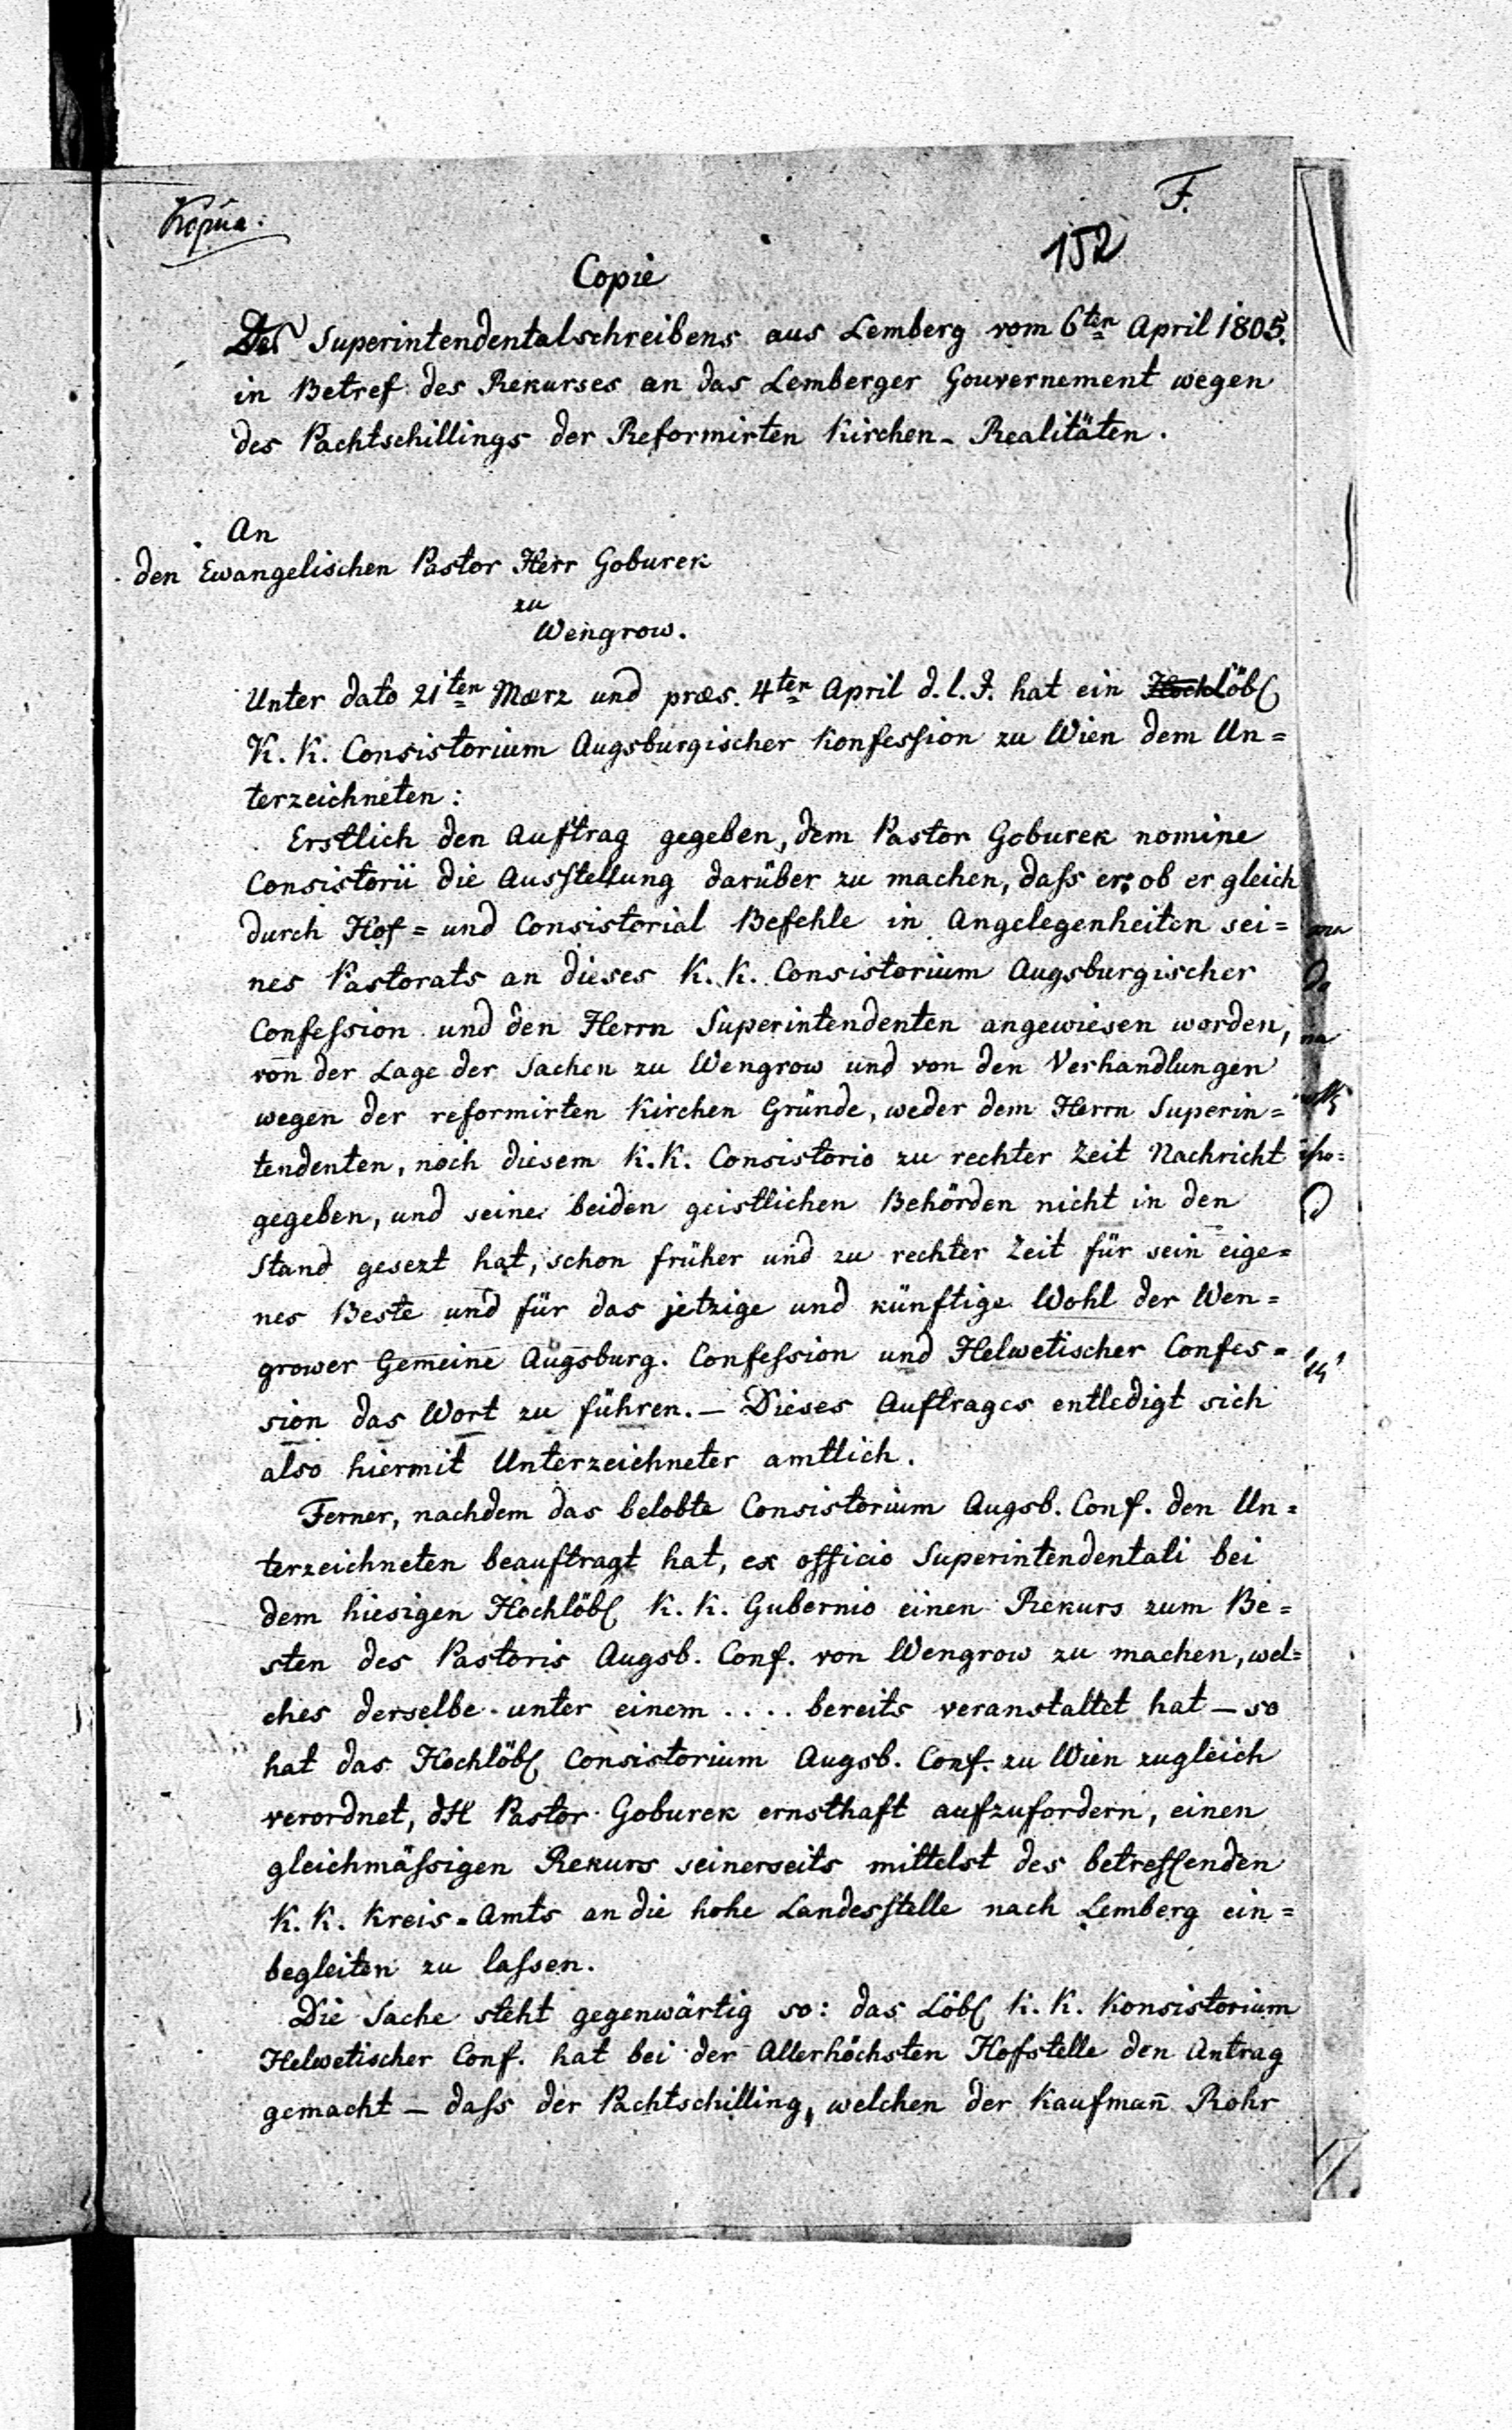 Kopia.
F.
152
Copie
Des Superintendentalschreibens aus Lemberg vom 6ten April 1805.
in Betref des Rekurses an das Lemberger Gouvernement wegen
des Pachtschillings der Reformirten Kirchen-Realitäten.
An
den Ewangelischen Pastor Herr Goburek
zu
Wengrow.
Unter dato 21ten Maerz und praes. 4ten April d. l. J. hat ein Hoch Löbl
K. K. Consistorium Augsburgischer Konfession zu Wien dem Un=
terzeichneten:
Erstlich den Auftrag gegeben, dem Pastor Goburek nomine
Consistorii die Ausstellung darüber zu machen, dass er, ob er gleich
durch Hof= und Consistorial Befehle in Angelegenheiten sei=
nes Pastorats an dieses K. K. Consistorium Augsburgischer
Confession und den Herrn Superintendenten angewiesen worden,
von der Lage der Sachen zu Wengrow und von den Verhandlungen
wegen der reformirten Kirchen Gründe, weder dem Herrn Superin=
tendenten, noch diesem K. K. Consistorio zu rechter Zeit Nachricht
gegeben, und seine beiden geistlichen Behörden nicht in den
Stand gesezt hat, schon früher und zu rechter Zeit für sein eige=
nes Beste und für das jetzige und künftige Wohl der Wen=
grower Gemeine Augsburg. Confession und Helwetischer Confes=
sion das Wort zu führen. — Dieses Auftrages entledigt sich
also hiermit Unterzeichneter amtlich.
Ferner, nachdem das belobte Consistorium Augsb. Conf. den Un=
terzeichneten beauftragt hat, ex officio Superintendentali bei
dem hiesigen Hochlöbl K. K. Gubernio einen Rekurs zum Be=
sten des Pastoris Augsb. Conf. von Wengrow zu machen, wel=
ches derselbe unter einem .... bereits veranstaltet hat — so
hat das Hochlöbl Consistorium Augsb. Conf. zu Wien zugleich
verordnet, dH Pastor Goburek ernsthaft aufzufordern, einen
gleichmässigen Rekurs seinerseits mittelst des betreffenden
K. K. Kreis=Amts an die hohe Landesstelle nach Lemberg ein=
begleiten zu lassen.
Die Sache steht gegenwärtig so: das Löbl K. K. Konsistorium
Helwetischer Conf. hat bei der Allerhöchsten Hofstelle den Antrag
gemacht — dass der Pachtschilling, welchen der Kaufmañ Rohr